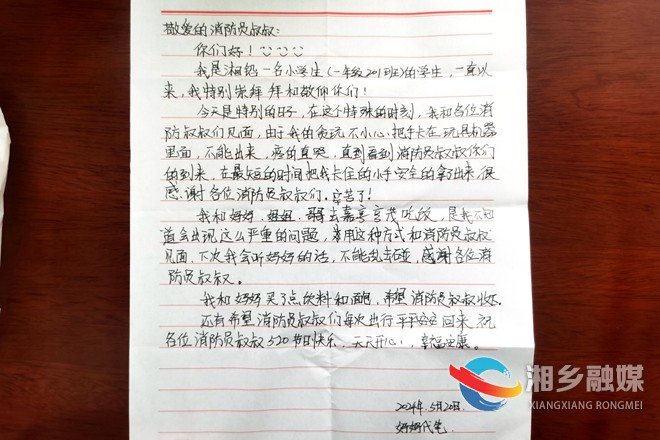 敬爱的消防员叔叔:
你们好!
我是湘铝一名小学生(一年级201班)的学生,一直以
来,我特别崇拜 拜和敬仰你们!
今天是特别的日子,在这个特殊的时刻,我和各位消
防叔叔们见面,由于我的贪玩不小心把手卡在玩具机器
里面,不能出来,疼的直哭,直到看到消防员叔叔你们
的到来,在最短的时间把我卡住的小手安全的拿了出来,很
感谢各位消防员叔叔们。辛苦了!
我和妈妈、姐姐、哥哥去嘉亨京茂吃饭,是我不知
道会出现这么严重的问题,要用这种方式和消防员叔叔
见面,下次我会听妈妈的话,不能乱去碰,感谢各位消
防员叔叔。
我和妈妈买了点饮料和面包,希望消防员叔叔收下。
还有希望消防员叔叔们每次出行平平安安回来,祝
各位消防员叔叔520节日快乐,天天开心!,幸福安康。
2024年5月20日.
妈妈代笔.
湘乡融媒
XIANGXIANG RONGMEI